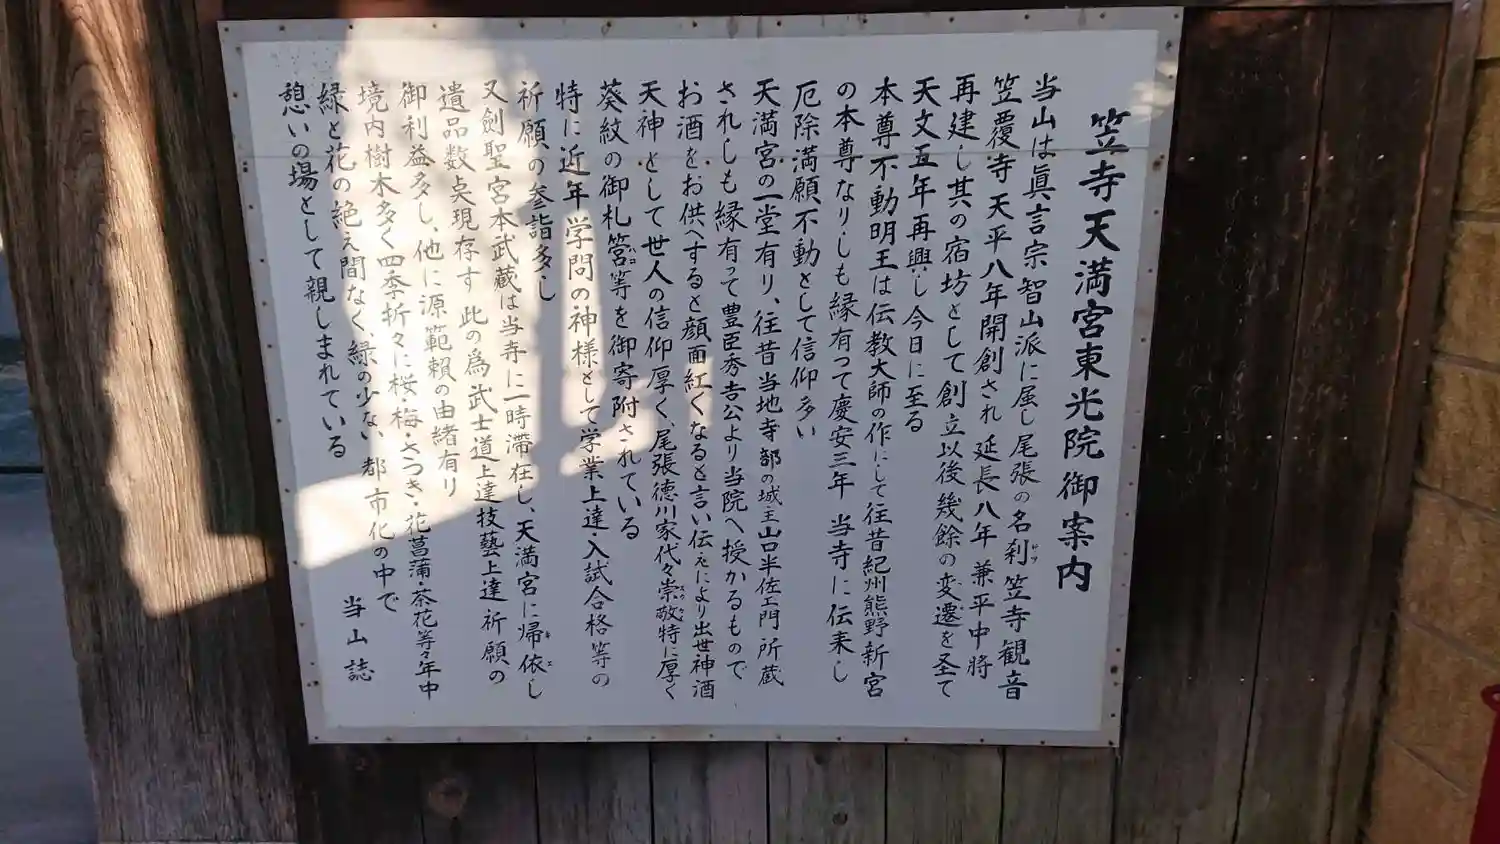 笠寺天満宮東光院御案内
当山は眞言宗智山派に属し尾張の名刹笠寺観音
笠覆寺天平八年開創され延長八年兼平中將
再建し其の宿坊として創立以後幾餘の変遷を圣て
天文五年再興し今日に至る
本尊不動明王は伝教大師の作にして往昔紀州熊野新宮
の本尊なりしも縁有って慶安三年当寺に伝来し
厄除満願不動として信仰多い
天満宮の一堂有り、往昔当地寺部の城主山口半佐エ門所蔵
されしも縁有って豊臣秀吉公より当院へ授かるもので
お酒をお供へすると顔面紅くなると言い伝えにより出世神酒
天神として世人の信仰厚く、尾張徳川家代々崇敬特に厚く
葵紋の御札筥等を御寄附されている
特に近年学問の神様として学業上達・入試合格等の
祈願の参詣多し
又劍聖宮本武蔵は当寺に一時滞在し、天満宮に帰依し
遺品数点現存す 此の為武士道上達技藝上達祈願の
御利益多し、他に源範頼の由緒有り
境内樹木多く四季折々に桜梅・さつき・花菖蒲・茶花等々年中
緑と花の絶え間なく、緑の少ない都市化の中で
憩いの場として親しまれている
当山誌